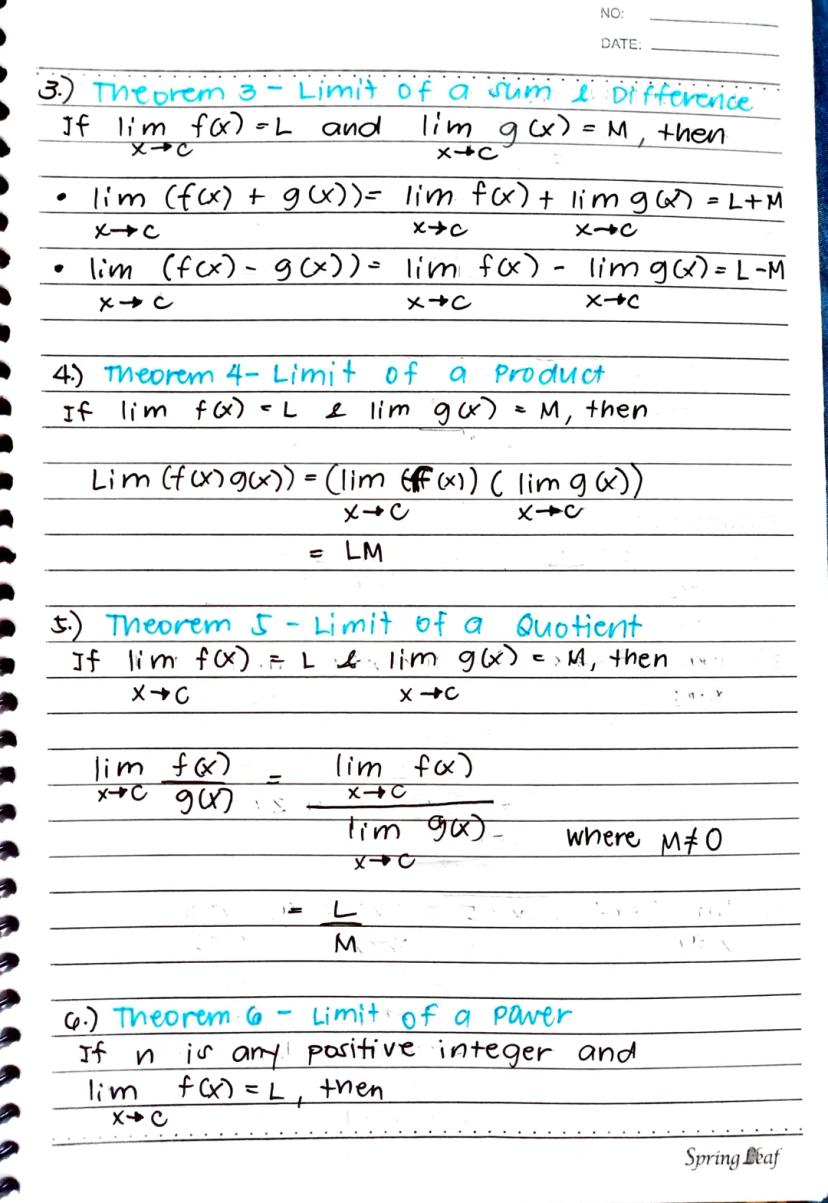 NO:
DATE:
3.) Theorem 3 - Limit of a sum & Difference
If lim f(x) = L and lim g(x) = M, then
x→c x→c
• lim (f(x) + g(x)) = lim f(x) + lim g(x) = L+M
x→c x→c x→c
• lim (f(x) - g(x)) = lim f(x) - lim g(x) = L-M
x→c x→c x→c
4.) Theorem 4 - Limit of a Product
If lim f(x) = L & lim g(x) = M, then
Lim (f(x)g(x)) = (lim (f(x)) (lim g(x))
x→c x→c
= LM
5.) Theorem 5 - Limit of a Quotient
If lim f(x) = L & lim g(x) = M, then
x→c x→c
lim f(x) = lim f(x)
x→c g(x) x→c
lim g(x) where M≠0
x→c
= L
M
6.) Theorem 6 - Limit of a power
If n is any positive integer and
lim f(x) = L, then
x→c
Spring Leaf